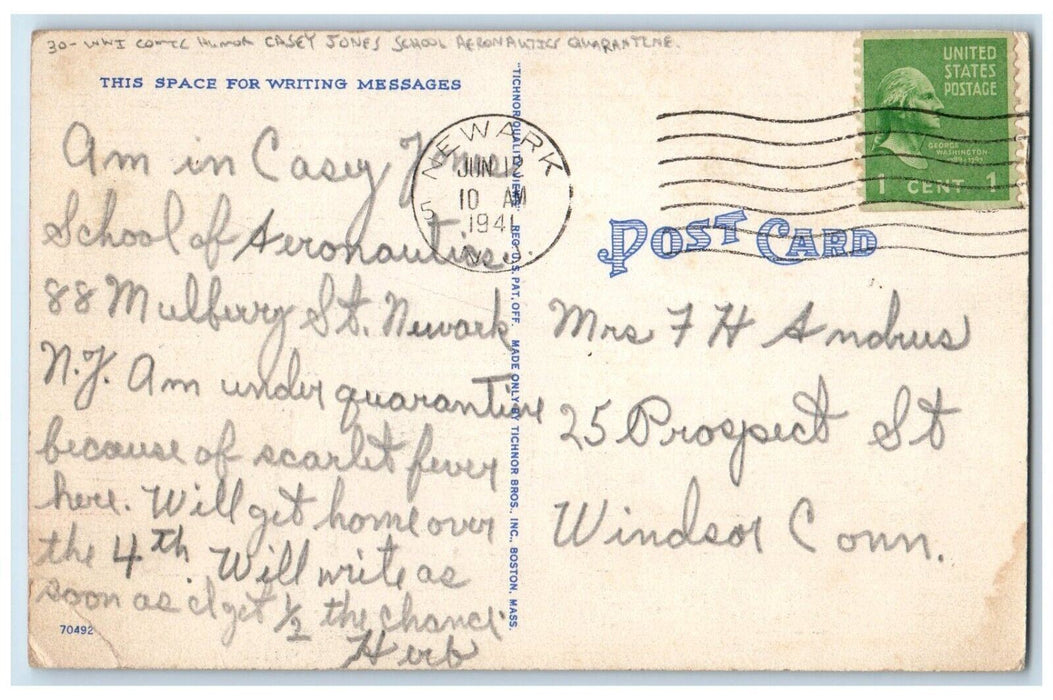 30- WWI COMIC HUMOR CASEY JONES SCHOOL AERONAUTICS QUARANTINE.
THIS SPACE FOR WRITING MESSAGES
Am in Casey Jones
School of Aeronautics.
88 Mulberry St. Newark
N.J. Am under quarantine
because of scarlet fever
here. Will get home over
the 4th. Will write as
soon as I get 1/2 the chance.
Herb
70492
"TICHNOR QUALITY VIEWS," REG. U. S. PAT. OFF. MADE ONLY BY TICHNOR BROS., INC., BOSTON, MASS.
NEWARK
5
JUN 12
10 AM
1941
UNITED
STATES
POSTAGE
GEORGE
WASHINGTON
1789-1797
1 CENT 1
POST CARD
Mrs F H Andrus
25 Prospect St
Windsor Conn.